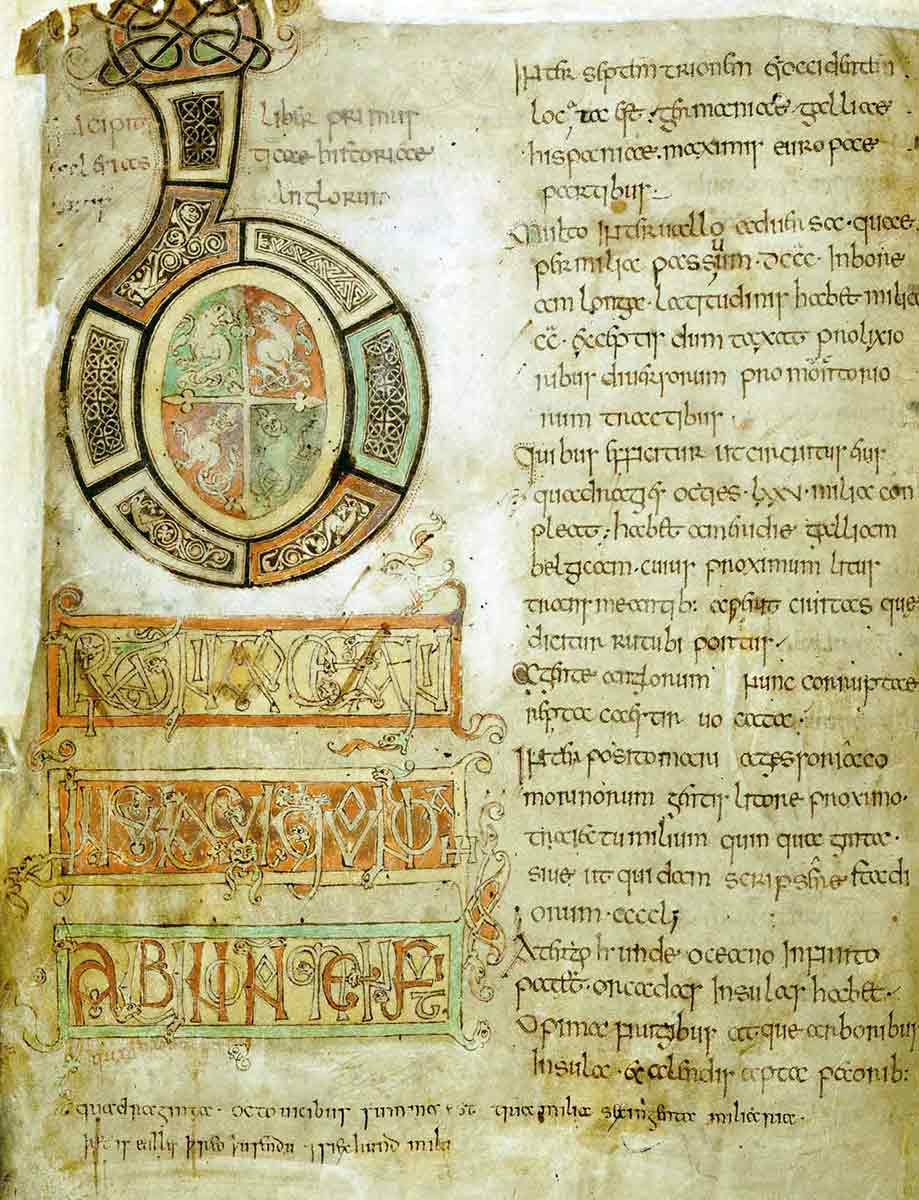 Liber primus
ticae historiae
Anglorum
INSULA CUI QUONDA
ALBION NOMEN FUIT
inter septemtrionem & occidentem
locata est. germaniae galliae
hispaniae. maximis europae
partibus.
Multo interuallo aduersae. quae
per milia passuum. dccc. in bore
am longa. latitudinis habet milia
cc. exceptis dum taxat prolixio
ribus diuersorum promontorio
rum tractibus.
Quibus efficitur ut circuitus eius
quadragies octies. lxxv. milia con
pleat. habet a meridie galliam
belgicam. cuius proximum litus
transmeantib: aperit ciuitas que
dicitur rutubi portus
a gente anglorum nunc corruptae
reptacaestir uocata.
inter posito mari a gesoriaco
morinorum gentis litore proximo.
traiectu milium quinquaginta.
siue ut quidam scripsere stadi
orum. ccccl;
A tergo unde oceano infinito
patet. orcadas insulas habet.
Opima frugibus atque arboribus
insula. & alendis apta pecorib:
quadraginta. octo uicibus summa est milia miliaria.